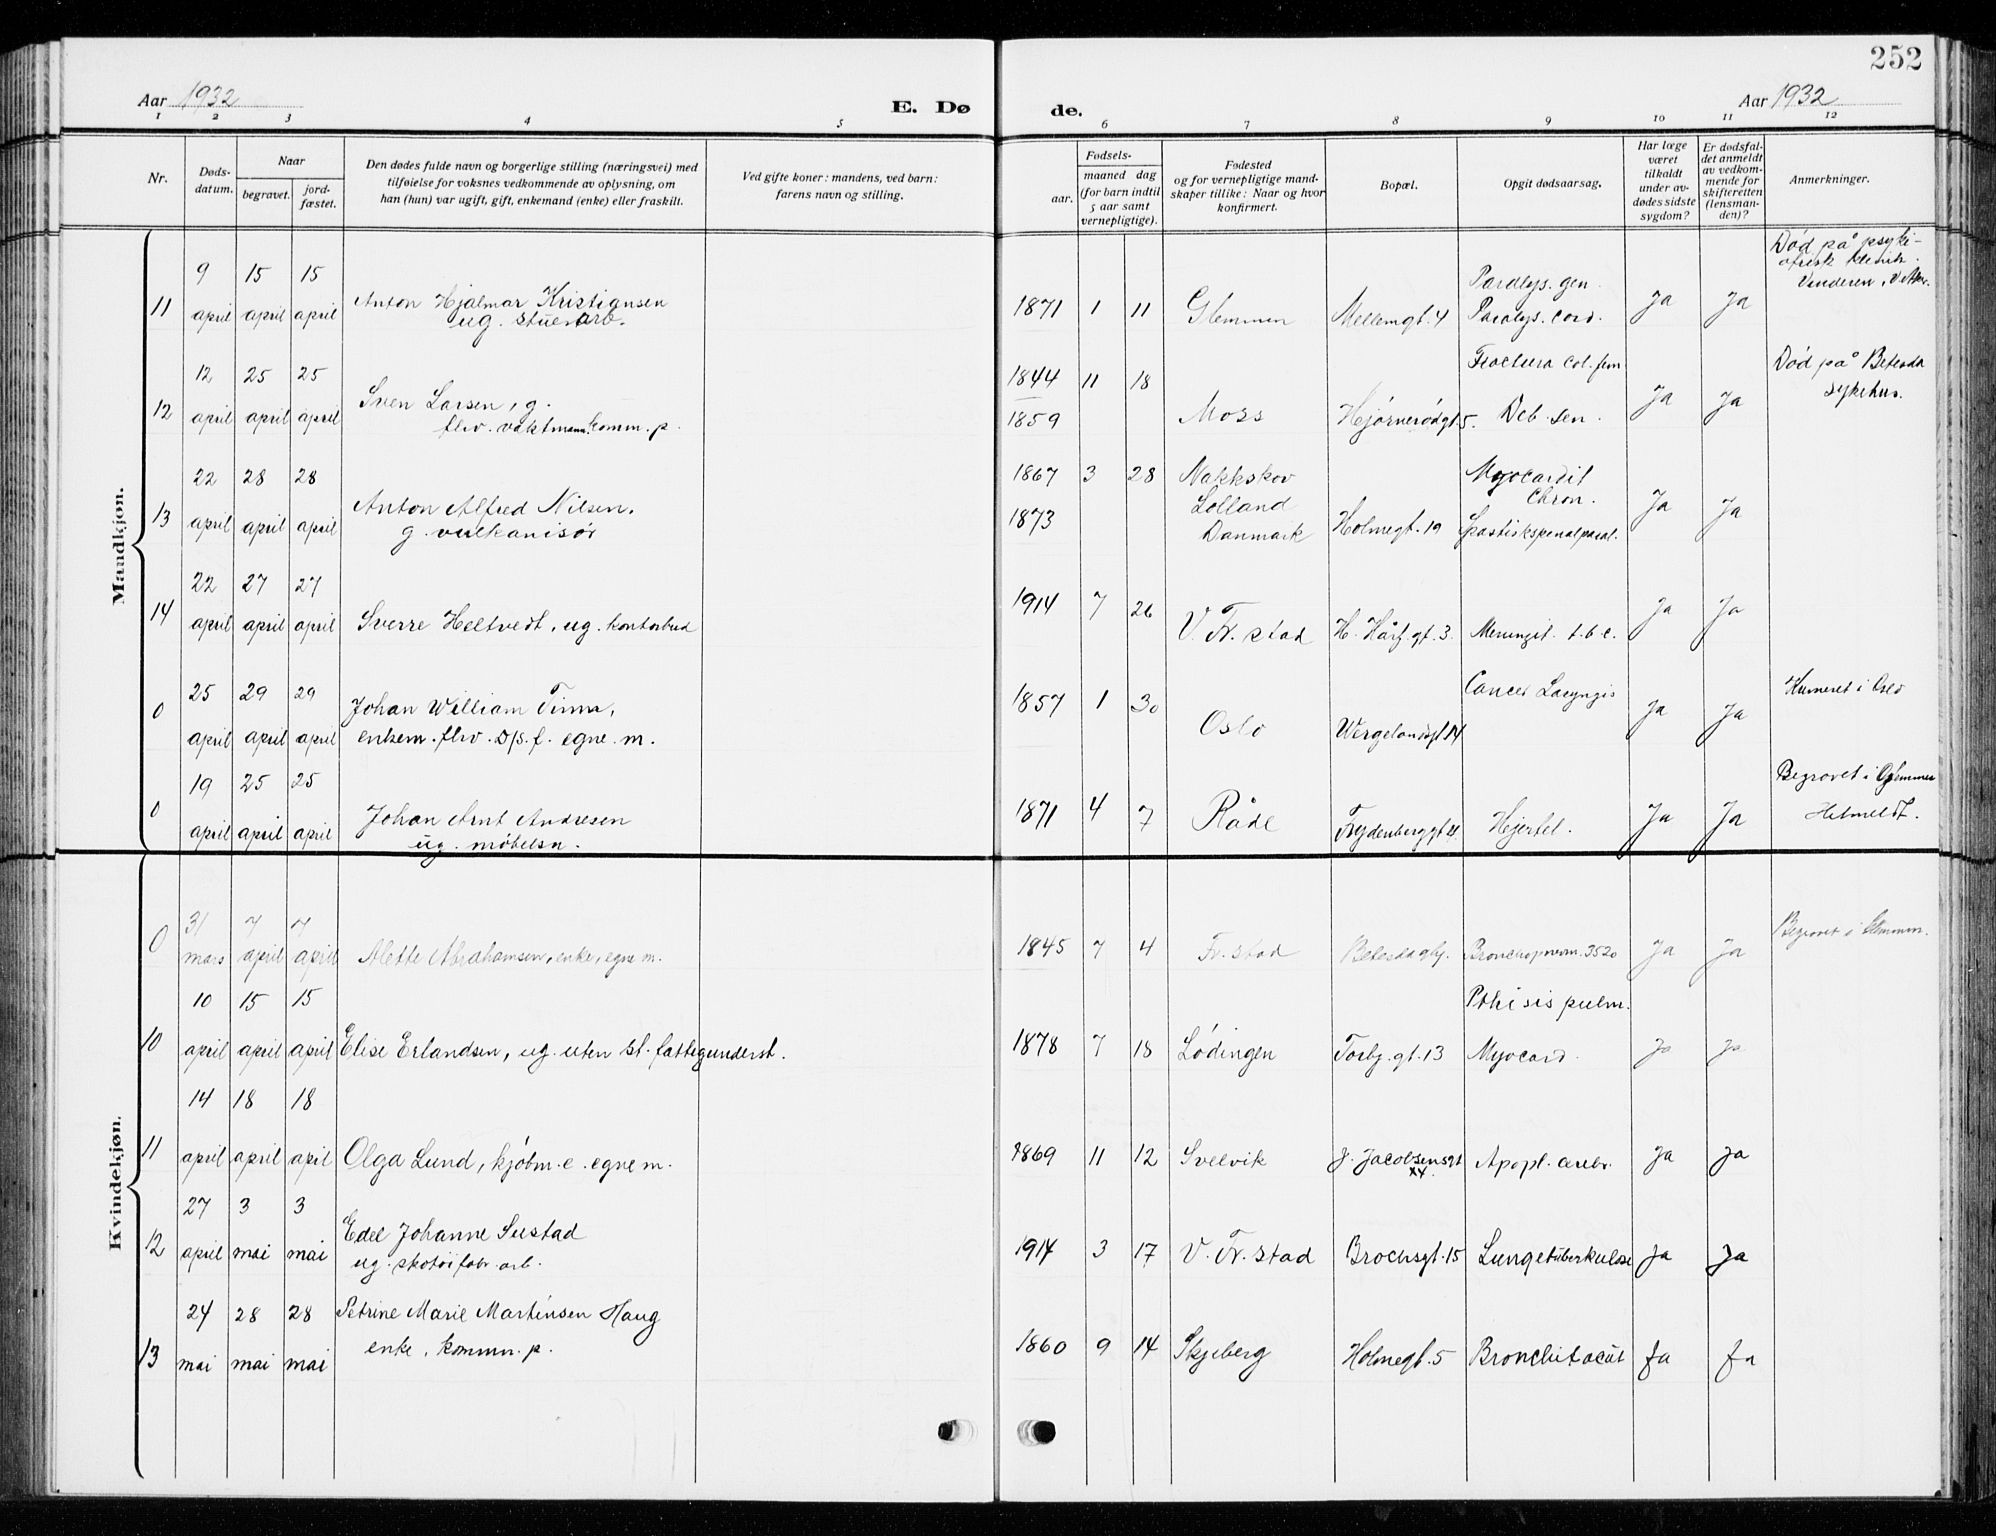 252
Aar 1932
E. Dø de.
Aar 1932
1 2 3 4 5 6 7 8 9 10 11 12
Nr.
Døds-
datum.
Naar
begravet.
jord-
fæstet.
Den dødes fulde navn og borgerlige stilling (næringsvei) med
tilføielse for voksnes vedkommende av oplysning, om
han (hun) var ugift, gift, enkemand (enke) eller fraskilt.
Ved gifte koner: mandens, ved barn:
farens navn og stilling.
Fødsels-
aar.
maaned dag
(for barn indtil
5 aar samt
vernepligtige).
Fødested
og for vernepligtige mand-
skaper tillike: Naar og hvor
konfirmert.
Bopæl.
Opgit dødsaarsag.
Har læge
været
tilkaldt
under av-
dødes sidste
sygdom?
Er dødsfal-
det anmeldt
av vedkom-
mende for
skifteretten
(lensman-
den)?
Anmerkninger.
Mandkjøn.
11 9 april 15 april 15 april
Anton Hjalmar Kristiansen
ug. stuerarb.
1871 1 11 Glemmen Mellemgt. 4
Paralys. gen.
Paralys. cord.
Ja Ja
Død på psyki-
atrisk klinik.
Vinderen, V. Aker.
12 12 april 25 april 25 april
Sven Larsen, g.
fhv. vaktmann. komm. p.
1844 11 18
1859
Moss Hjørnerødgt. 5.
Fractura col. fem
Deb. sen.
Ja Ja
Død på Betesda
sykehus.
13 22 april 28 april 28 april
Anton Alfred Nilsen.
g. vulkanisør
1867 3 28
1873
Nakkskov
Lolland
Danmark
Holmegt. 19
Myocardit
Chron.
Spastiskspinalparal.
Ja Ja
14 22 april 27 april 27 april
Sverre Heltvedt, ug. kontorbud
1914 7 26 V. Fr. stad H. Hårf. gt. 3. Meningit. t.b.c.
Ja Ja
0 25 april 29 april 29 april
Johan William Timm,
enkem. fhv. D/S. f. egne m.
1857 1 30 Oslo Wergelandsgt. 14
Cancer Laryngis
Ja Ja
Kremert i Oslo
0 19 april 25 april 25 april
Johan Arnt Andresen
ug. møbelsn.
1871 4 7 Råde Frydenberggt. 21 Hjertel.
Ja Ja
Begravet i Glemmen
Hitmeldt.
Kvindekjøn.
0 31 mars 7 april 7 april
Alette Abrahamsen, enke, egne m.
1845 7 4 Fr. stad Betesdaghj. Bronchopnevm. 3520
Ja Ja
Begravet i Glemmen.
10 10 april 15 april 15 april
Elise Erlandsen, ug. uten st. fattigunderst.
1878 7 18 Lødingen Torbj. gt. 13
Pthisis pulm.
Myocard.
Ja Ja
11 14 april 18 april 18 april
Olga Lund, kjøbm. e. egne m.
1869 11 12 Svelvik J. Jacobsensgt
24.
Apopl. cerebr.
Ja Ja
12 27 april 3 mai 3 mai
Edel Johanne Sustad
ug. skotøifabr. arb.
1914 3 17 V. Fr. stad Brochsgt. 15 Lungetuberkulose
Ja Ja
13 24 mai 28 mai 28 mai
Petrine Marie Martinsen Haug
enke, kommn. p.
1860 9 14 Skjeberg Holmegt. 5 Bronchit acut
Ja Ja